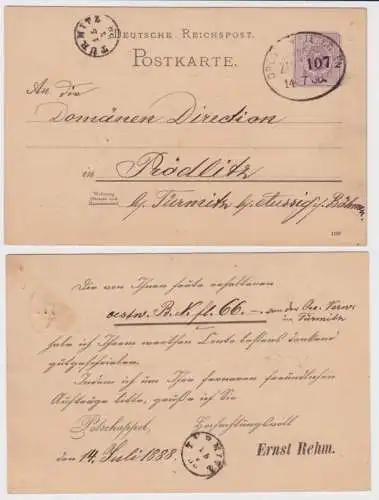 DEUTSCHE REICHSPOST.
POSTKARTE.
TÜRMITZ
107
14 7
An die
Domänen Direction
in Prödlitz
Wohnung
(Strasse und
Hausnummer)
b/ Türmitz b/ Aussig i/ Böhmen
Die von Ihnen heute erhaltenen
oestw. B.N. fl. 66. — von der Oec. Verw.
in Türmitz
habe ich Ihrem werthen Conto bestens dankend
gutgeschrieben.
Indem ich um Ihre ferneren freundlichen
Aufträge bitte, grüsse ich Sie
Potschappel, Hochachtungsvoll
den 14. Juli 1888.
TÜRMITZ
Ernst Rehm.